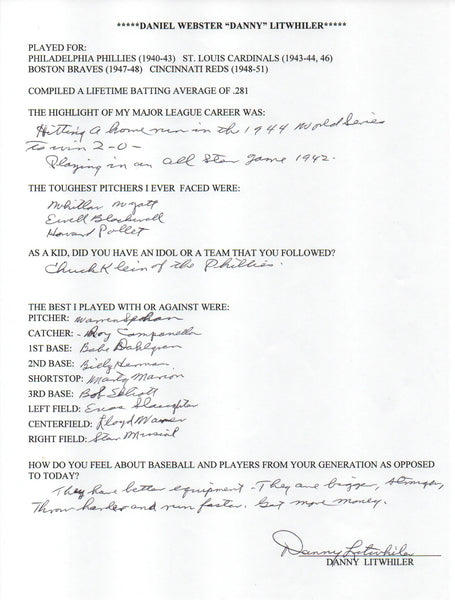 *****DANIEL WEBSTER “DANNY” LITWHILER*****
PLAYED FOR:
PHILADELPHIA PHILLIES (1940-43) ST. LOUIS CARDINALS (1943-44, 46)
BOSTON BRAVES (1947-48) CINCINNATI REDS (1948-51)
COMPILED A LIFETIME BATTING AVERAGE OF .281
THE HIGHLIGHT OF MY MAJOR LEAGUE CAREER WAS:
Hitting a home run in the 1944 World Series
to win 2-0-
Playing in an All Star Game 1942.
THE TOUGHEST PITCHERS I EVER FACED WERE:
Whitlow Wyatt
Ewell Blackwell
Howard Pollet
AS A KID, DID YOU HAVE AN IDOL OR A TEAM THAT YOU FOLLOWED?
Chuck Klein of the Phillies.
THE BEST I PLAYED WITH OR AGAINST WERE:
PITCHER: Warren Spahn
CATCHER: - Roy Campanella
1ST BASE: Babe Dahlgren
2ND BASE: Billy Herman
SHORTSTOP: Marty Marion
3RD BASE: Bob Elliott
LEFT FIELD: Enos Slaughter
CENTERFIELD: Lloyd Waner
RIGHT FIELD: Stan Musial
HOW DO YOU FEEL ABOUT BASEBALL AND PLAYERS FROM YOUR GENERATION AS OPPOSED
TO TODAY?
They have better equipment - They are bigger, stronger,
Throw harder and run faster. Get more money.
Danny Litwhiler
DANNY LITWHILER